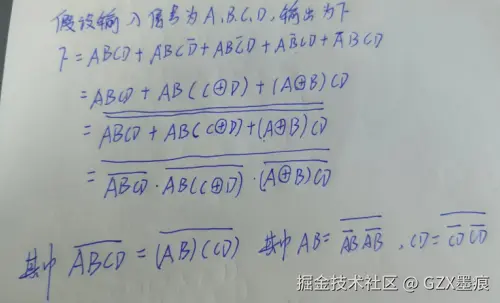 假设输入信号为A、B、C、D,输出为F
F = ABCD + ABCD̅ + ABC̅D + AB̅CD + A̅BCD
= ABCD + AB(C⊕D) + (A⊕B)CD
= \overline{\overline{ABCD + AB(C⊕D) + (A⊕B)CD}}
= \overline{\overline{ABCD} · \overline{AB(C⊕D)} · \overline{(A⊕B)CD}}
其中 \overline{ABCD} = \overline{(AB)(CD)} 其中 AB = \overline{\overline{AB} \overline{AB}} , CD = \overline{\overline{CD} \overline{CD}}
掘金技术社区 @ GZX墨痕